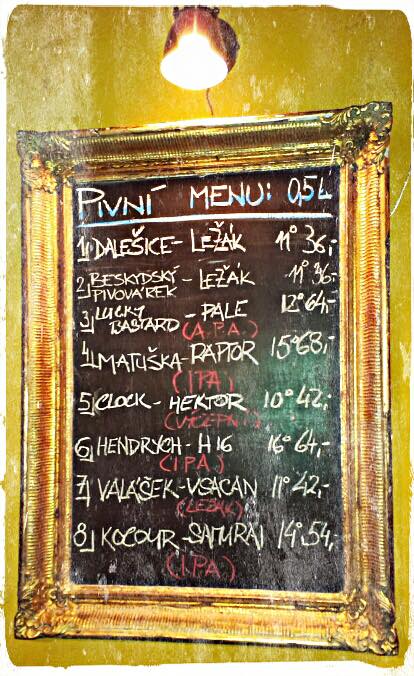 PIVNÍ MENU: 0,5L
1, DALEŠICE - LEŽÁK 11° 36,-
2, BESKYDSKÝ PIVOVÁREK - LEŽÁK 11° 36-
3, LUCKY BASTARD - PALE 12° 64,-
(A.P.A.)
4, MATUŠKA - RAPTOR 15° 68,-
(IPA)
5, CLOCK - HEKTOR 10° 42,-
(VÝČEPNÍ)
6, HENDRYCH - H16 16° 64,-
(I.P.A.)
7, VALÁŠEK - VSACAN 11° 42,-
(LEŽÁK)
8, KOCOUR - SAMURAJ 14° 54,-
(I.PA)